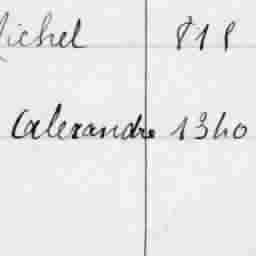 Michel 818
Calexandre 1340